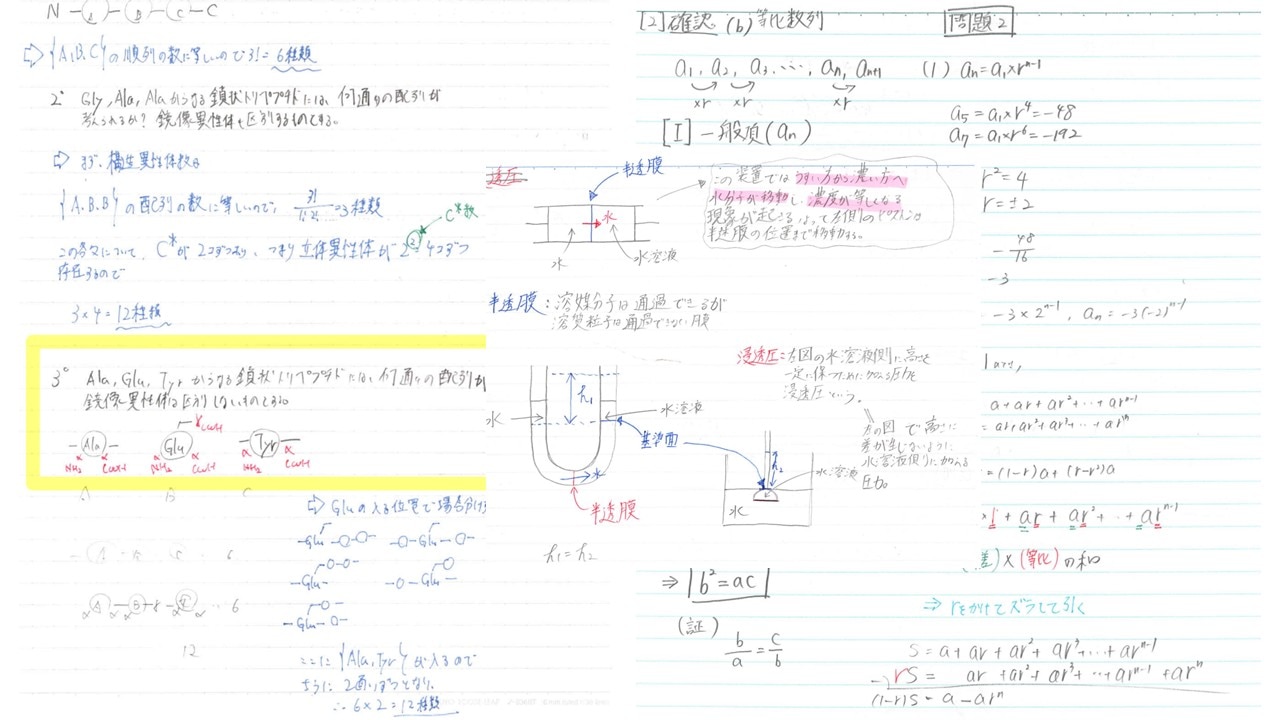 N -(A)-(B)-(C)- C
⇨ {A,B,C}の順列の数に等しいので 3! = 6種類
2° Gly, Ala, Alaからなる鎖状トリペプチドには、何通りの配列が
考えられるか? 鏡像異性体も区別するものとする。
⇨ まず、構造異性体数は
{A,B,B}の配列の数に等しいので、 3!/1!・2! = 3種類
C*数
この各々について、C*が2つずつあり、つまり立体異性体が2²=4つずつ
存在するので
3×4 = 12種類
3° Ala, Glu, Tyrからなる鎖状トリペプチドには、何通りの配列が
鏡像異性体は区別しないものとする。
Ala Glu Tyr
NH₂ COOH NH₂ COOH NH₂ COOH
γ COOH
A B C
⇨ Gluの入る位置で場合分け
-Glu-O-O- -O-Glu-O-
-O-O-
-Glu- -O-Glu-
-Glu-O-
ここに {Ala, Tyr} が入るので
さらに 2通りずつとなり、
∴ 6×2 = 12種類
6
A B 6
12
浸透圧
半透膜
水
水 水溶液
この装置では うすい方から濃い方へ
水分子が移動し、濃度が等しくなる
現象が起こる。よって右側のピストンは
半透膜の位置まで移動する。
半透膜: 溶媒分子は通過できるが
溶質粒子は通過できない膜
水 h₁ 水溶液
基準面
水
半透膜
h₁ = h₂
浸透圧: 右図の水溶液側に高さを
一定に保つために加える圧力を
浸透圧という。
左の図で高さに
差が生じないように
水溶液側に加える
圧力。
h₂
水溶液
水
[2] 確認 (b) 等比数列
a₁, a₂, a₃, ‥‥, aₙ, aₙ₊₁
×r ×r ×r
[I] 一般項(aₙ)
⇒ b² = ac
(証)
b/a = c/b
問題2
(1) aₙ = a₁×rⁿ⁻¹
a₅ = a₁×r⁴ = -48
a₇ = a₁×r⁶ = -192
r² = 4
r = ±2
- 48/16
-3
-3×2ⁿ⁻¹, aₙ = -3(-2)ⁿ⁻¹
a + ar + ar² + ‥ + arⁿ⁻¹
= ar + ar² + ar³ + ‥ + arⁿ
= (1-r)a + (r-r²)a
×1 + ar + ar² + ‥ + arⁿ⁻¹
差)×(等比)の和
⇒ rをかけてズラして引く
S = a + ar + ar² + ar³ + ‥ + arⁿ⁻¹
-) rS = ar + ar² + ar³ + ‥ + arⁿ⁻¹ + arⁿ
(1-r)S = a - arⁿ